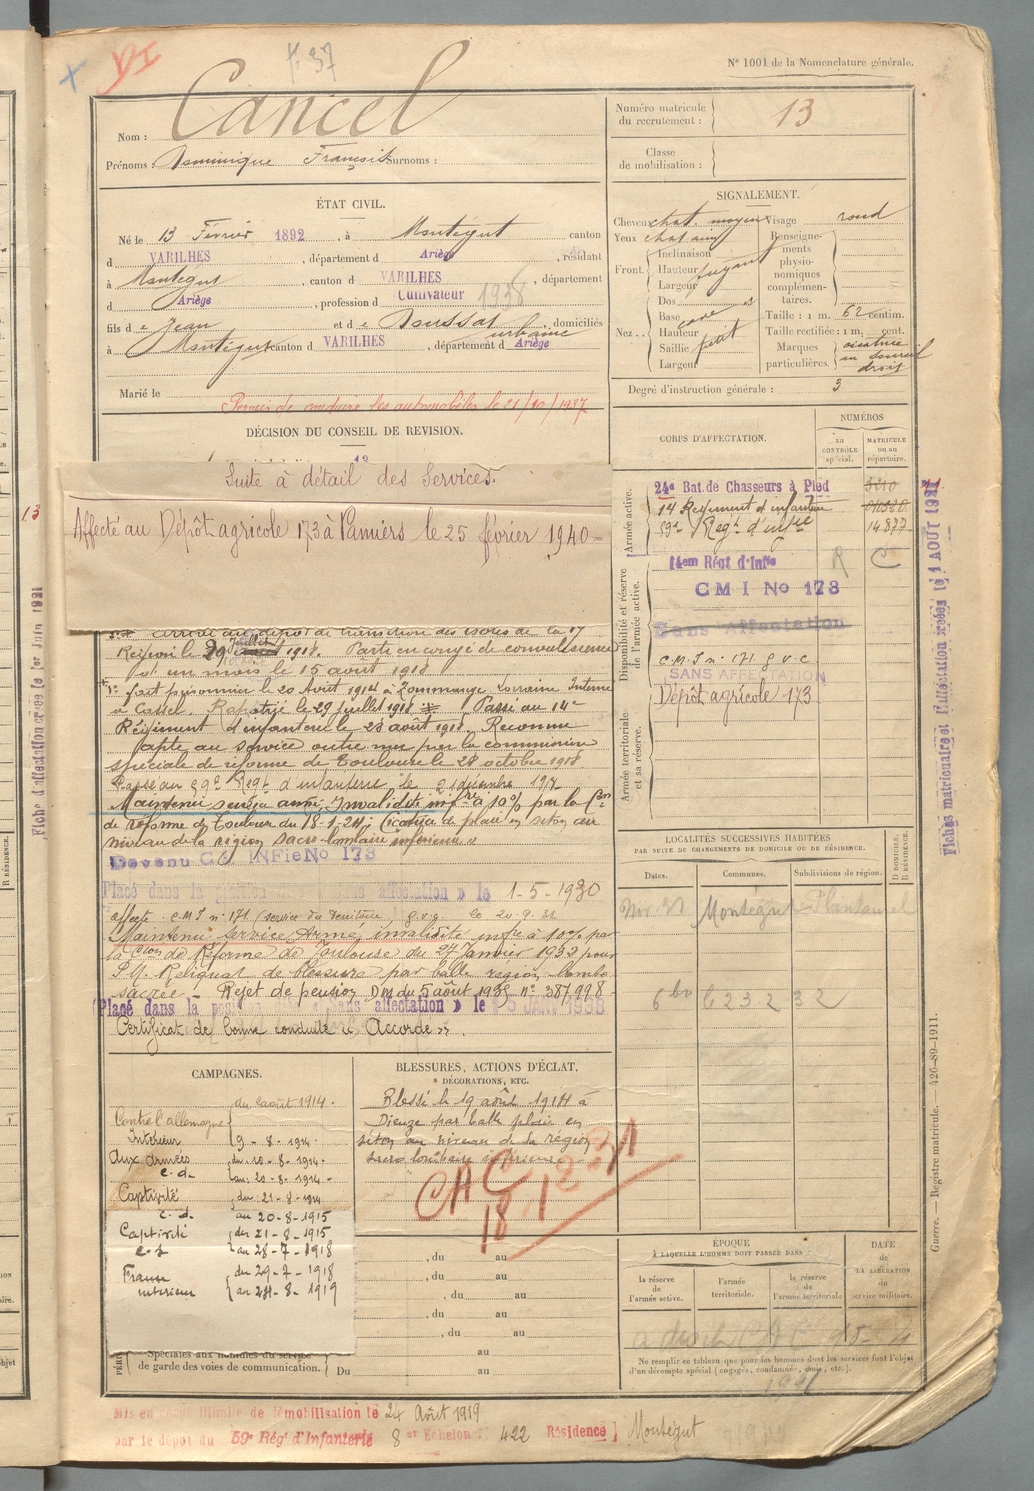 N° 1001 de la Nomenclature générale.
VI
P. 37
Nom : Cancel
Prénoms : Dominique François Surnoms :
Numéro matricule du recrutement : 13
Classe de mobilisation :
ÉTAT CIVIL.
Né le 13 Février 1892, à Montégut canton
d VARILHES, département d Ariège, résidant
à Montégut, canton d VARILHES, département
d Ariège, profession d Cultivateur 1938
fils de Jean et de Doussat urbaine, domiciliés
à Montégut canton d VARILHES, département d Ariège
Marié le
Permis de conduire les automobiles le 21/10/1937
SIGNALEMENT.
Cheveux chat. moyen Visage rond
Yeux chat
Front. Inclinaison
Hauteur fuyant
Largeur
Nez Dos
Base cave
Hauteur petit
Saillie
Largeur
Renseignements physionomiques complémentaires.
Taille : 1 m. 62 centim.
Taille rectifiée : 1 m. cent.
Marques particulières. cicatrice au sourcil droit
Degré d'instruction générale : 3
DÉCISION DU CONSEIL DE REVISION.
Suite à détail des Services.
Affecté au Dépôt agricole 173 à Pamiers le 25 février 1940-
arrivé au dépôt de transition des isolés de la 17
Région le 29 Juillet 1918. Parti en congé de convalescence
un mois le 15 août 1918
fait prisonnier le 20 Août 1914 à Zommange, Lorraine Interné
à Cassel. Rapatrié le 29 Juillet 1918 Passé au 14e
Régiment d'infanterie le 28 août 1918 Reconnu
apte au service outre-mer par la commission
spéciale de réforme de Toulouse le 28 octobre 1918.
Passé au 59e Régt d'infanterie le 21 décembre 1918
Maintenu service armé, Invalidité infre à 10% par la Con
de réforme de Toulouse du 18-1-21; Cicatrice de plaie en séton au
niveau de la région sacro-lombaire inférieure »
Devenu C.M. INFie No 173
Placé dans la position « sans affectation » le 1-5-1930
affecté C.M.I n° 171 (service du Territoire) g.v.c. le 20.9.32
Maintenu Service Armé, invalidité infre à 10% par
la Cion de Réforme de Toulouse du 24 Janvier 1933 pour
P.M. Reliquat de blessure par balle région lombo
sacrée - Rejet de pension DM du 5 août 1935 n° 387998-
Placé dans la position « sans affectation » le 15 JANV 1938
Certificat de bonne conduite « Accordé ».
CORPS D'AFFECTATION.
NUMÉROS
au CONTRÔLE spécial.
MATRICULE ou au répertoire.
Armée active.
24e Bat. de Chasseurs à Pied
14 Régiment d'infanterie
59e Régt d'infie 14877
Disponibilité et réserve de l'armée active.
14em Régt d'Infie R C
CMI No 173
Sans Affectation
C.M.I n° 171. g v c
SANS AFFECTATION
Dépôt agricole 173
Armée territoriale et sa réserve.
LOCALITÉS SUCCESSIVES HABITÉES
PAR SUITE DE CHANGEMENTS DE DOMICILE OU DE RÉSIDENCE.
Dates. Communes. Subdivisions de région. D DOMICILE. R RÉSIDENCE.
Montégut-Plantaurel
CAMPAGNES.
Contre l'allemagne du 2 août 1914.
Intérieur 9-8-1914
Aux Armées du 10-8-1914.
c.d. au 20-8-1914-
Captivité du 21-8-1914
c.d. au 20-8-1915
Captivité du 21-8-1915
c.s au 28-7-1918
France du 29-7-1918
intérieur au 24-8-1919
BLESSURES, ACTIONS D'ÉCLAT,
DÉCORATIONS, ETC.
Blessé le 19 août 1914 à
Dieuze par balle plaie en
séton au niveau de la région
sacro lombaire inférieure
CAC
, du au
, du au
, du au
, du au
, du au
au
Spéciales aux hommes du service
de garde des voies de communication. Du au
ÉPOQUE
À LAQUELLE L'HOMME DOIT PASSER DANS
la réserve de l'armée active.
l'armée territoriale.
la réserve de l'armée territoriale
DATE de LA LIBÉRATION du service militaire.
Ne remplir ce tableau que pour les hommes dont les services font l'objet
d'un décompte spécial (engagés, condamnés, omis, etc.).
Mis en congé illimité de démobilisation le 24 Août 1919
par le dépôt du 59e Rég' d'Infanterie 8 er Echelon N° 422 Résidence Montégut
Fiches matriculaire et d'affectation créées le 1 AOUT 1921
Guerre. — Registre matricule. — 426-89-1911.
13
Fiche d'affectation créée le 1er Juin 1921
R RÉSIDENCE.